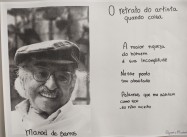 O retrato do artista
quando coisa
A maior riqueza
do homem
é sua incompletude
Nesse ponto
sou abastado
Palavras que me aceitam
como sou
eu não aceito
Manoel de Barros